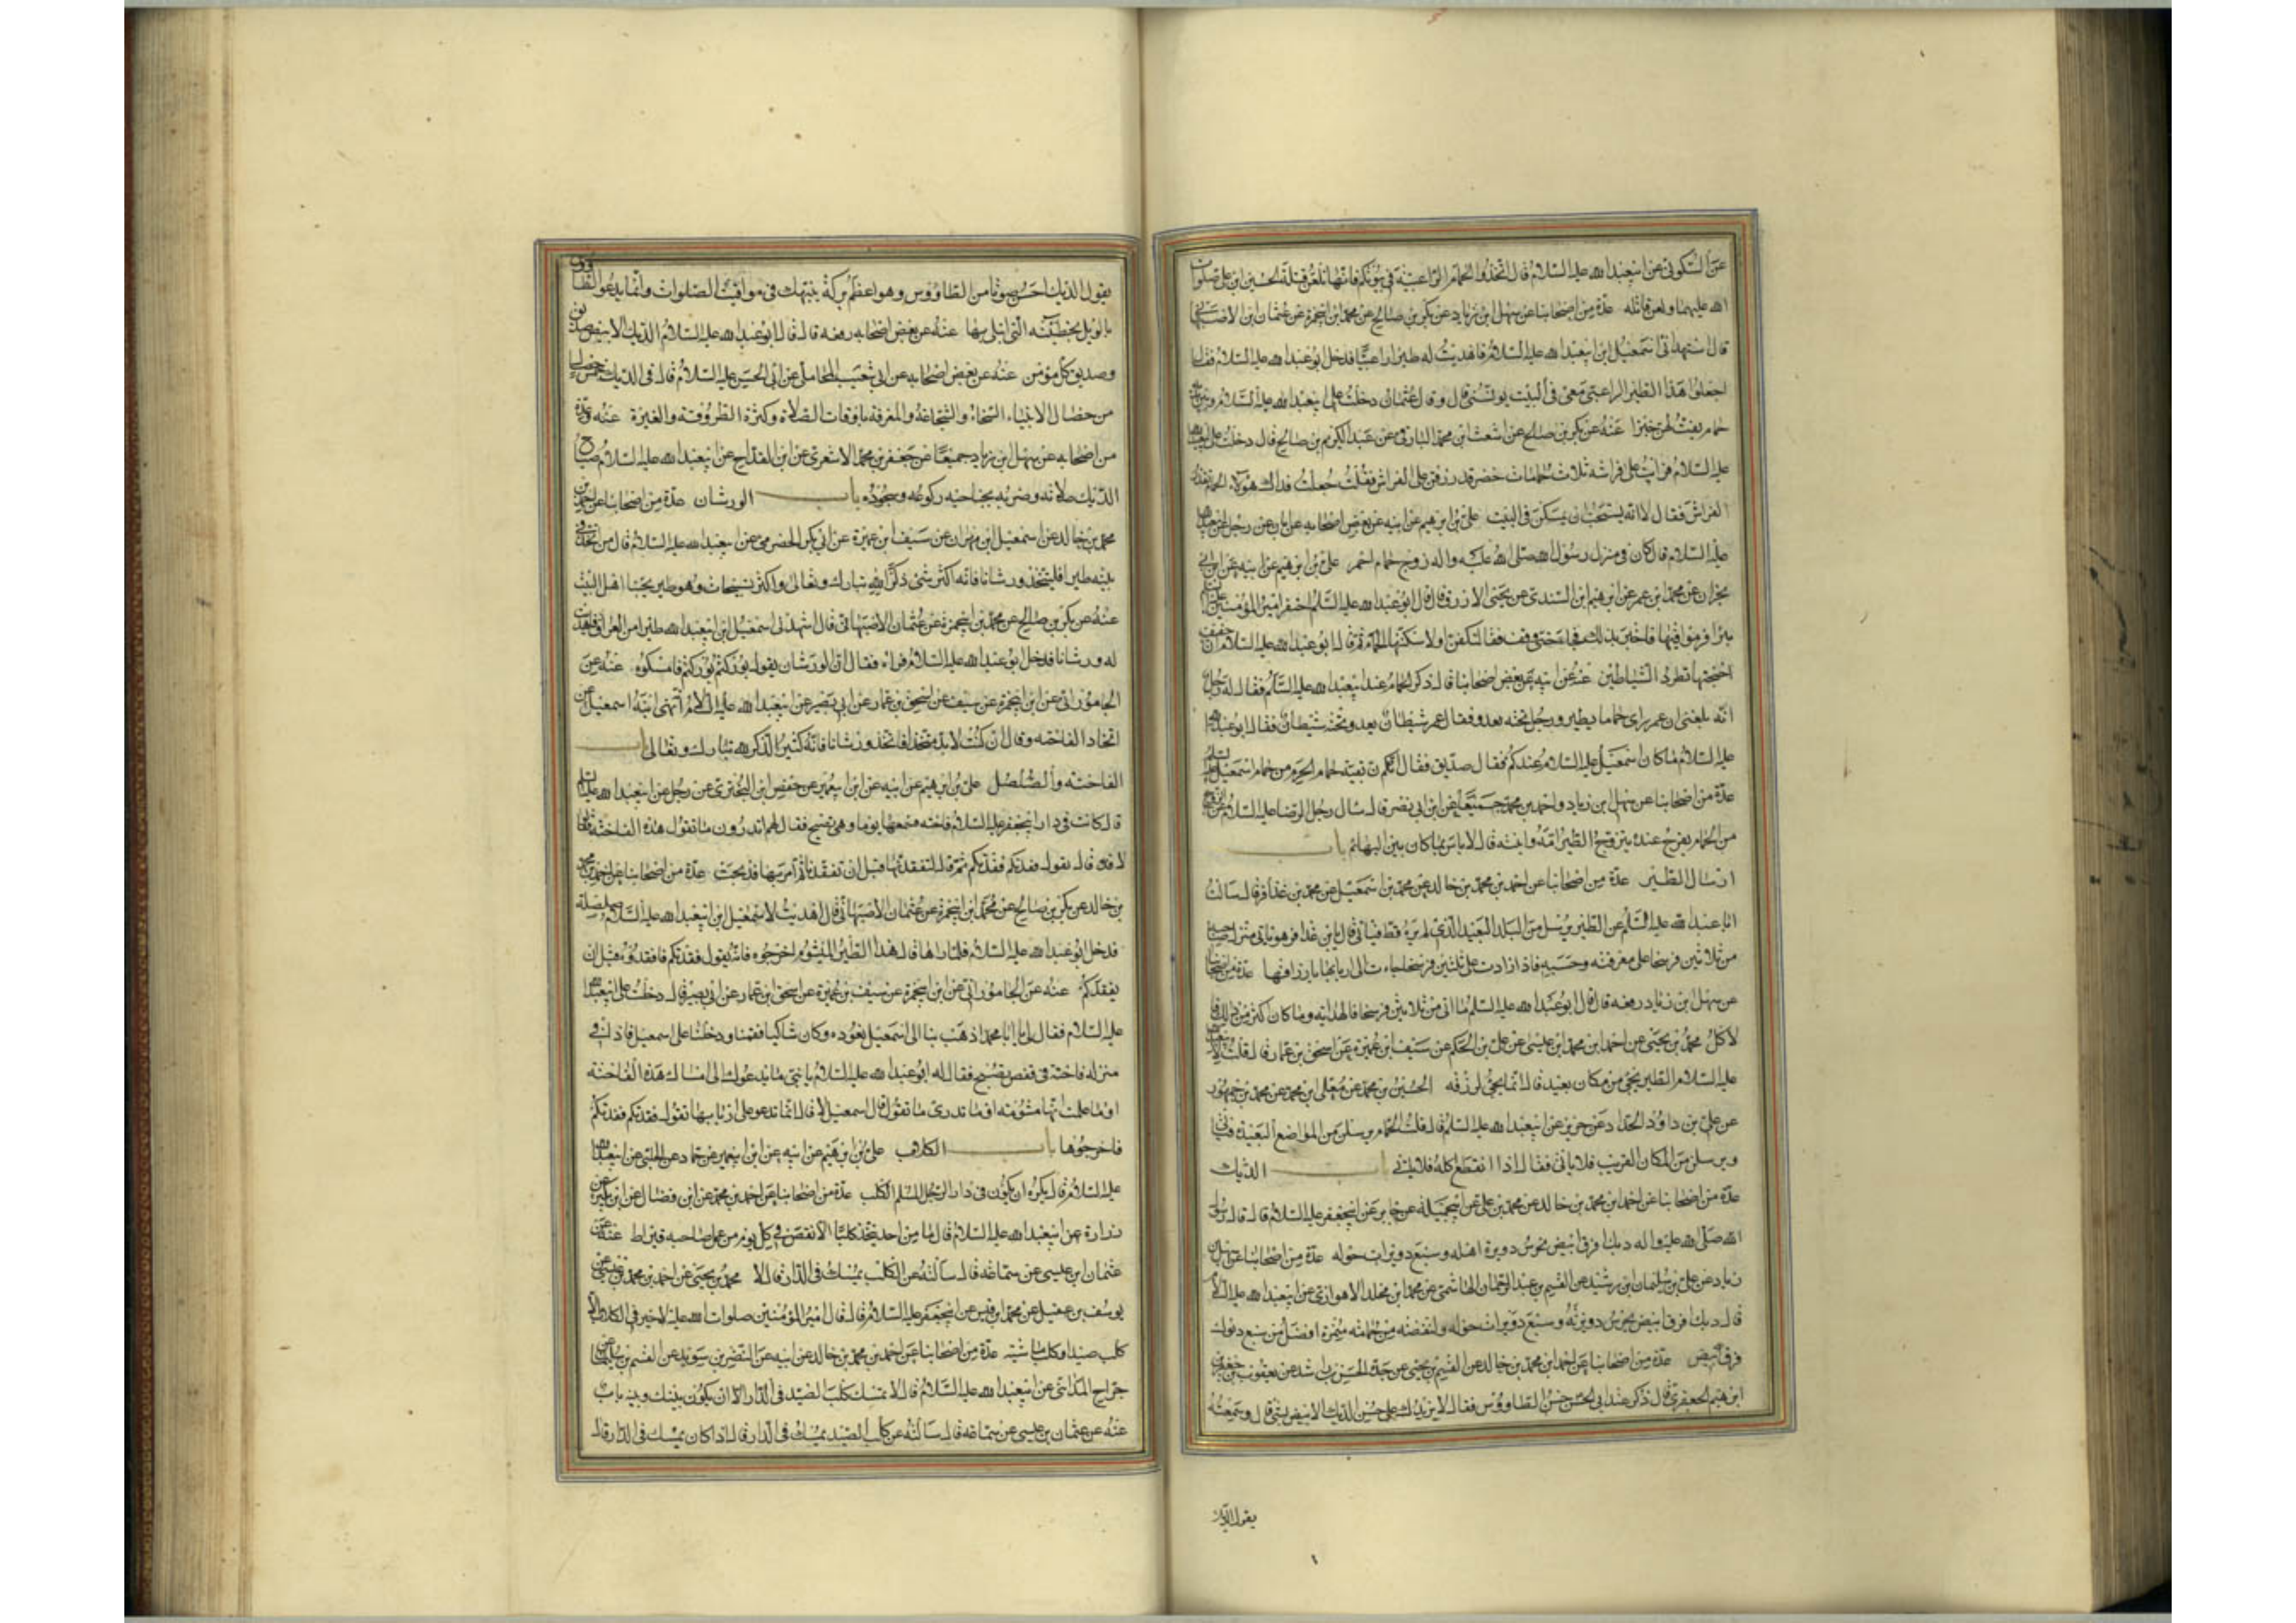 عن السكوني عن ابيعبدالله عليه السلام قال اتخذوا الحمام الراعبية في بيوتكم فانها تلعن قتلة الحسين ابن علي صلوات
الله عليهما ولعن قاتله عدّة من اصحابنا عن سهل ابن زياد عن بكر بن صالح عن محمد ابن ابيحمزة عن عثمان ابن الاصبهاني
قال استهداني اسمعيل ابن ابيعبدالله عليه السلام فاهديت له طيرا راعبيّا فدخل ابوعبدالله عليه السلام فقال
اجعلوا هذا الطير الراعبي معي في البيت يونسني قال وقال عثمان دخلت على ابيعبدالله عليه السلام وبين يديه
حمام يفتّ لهن خبزا عنه عن بكر بن صالح عن اشعث ابن محمد البارقي عن عبدالكريم بن صالح قال دخلت على ابيعبدالله
عليه السلام فرايت على فراشه ثلاث حمامات خضر قد ذرقن على الفراش فقلت جعلت فداك هؤلاء الحمام تقذر
الفراش فقال لا انه يستحب ان يسكن في البيت علي بن ابرهيم عن ابيه عن بعض اصحابه عن ابان عن رجل عن ابيعبدالله
عليه السلام قال كان في منزل رسول الله صلى الله عليه واله زوج حمام احمر علي بن ابرهيم عن ابيه عن ابن ابي
نجران عن محمد ابن عمر عن ابرهيم ابن السندي عن يحيى الازرق قال قال ابوعبدالله عليه السلام احتفر امير المؤمنين عليه السلام
بئرا فرموا فيها فاخبر بذلك فجاء حتى وقف فقال لتكفن او لاسكننها الحمام ثم قال ابوعبدالله عليه السلام ان حفيف
اجنحتها تطرد الشياطين عنه عن ابيه عن بعض اصحابنا قال ذكر الحمام عند ابيعبدالله عليه السلام فقال له رجل
انه بلغني ان عمر راى حماما يطير ورجل تحته يعدو فقال عمر شيطان يعدو تحته شيطان فقال ابوعبدالله
عليه السلام ما كان اسمعيل عليه السلام عندكم فقال صديق فقال انكم بقية حمام الحرم من حمام اسمعيل عليه السلام
عدّة من اصحابنا عن سهل بن زياد واحمد بن محمد جميعا عن ابن ابي نصر قال سال رجل الرضا عليه السلام عن الزوج
من الحمام يفرخ عنده يتزوج الطير امّه وابنته قال لا باس بما كان بين البهائم باب
ارسال الطير عدّة من اصحابنا عن احمد بن محمد بن خالد عن محمد بن اسمعيل عن محمد بن عذافر قال سالت
ابا عبدالله عليه السلام عن الطير يرسل من البلد البعيد الذي لم يره قط فياتي قال يا ابن عذافر هو ياتي منزل صاحبه
من ثلاثين فرسخا على معرفته وحسبه فاذا زادت على ثلثين فرسخا جاءت الى اربابها بارزاقها عدّة من اصحابنا
عن سهل ابن زياد رفعه قال قال ابوعبدالله عليه السلم ما اتى من ثلاثين فرسخا فالهداية وما كان اكثر من ذلك
لاكل محمد بن يحيى عن احمد ابن محمد ابن عيسى عن علي بن الحكم عن سيف ابن عميرة عن اسحق بن عمار قال قلت لابيعبدالله
عليه السلام الطير يجئ من مكان بعيد قال انما يجئ لرزقه الحسين بن محمد عن معلى ابن محمد عن محمد بن جمهور
عن علي بن داود الحداد عن حريز عن ابيعبدالله عليه السلم قال قلت الحمام يرسلن من المواضع البعيدة فتاتي
ويرسلن من المكان القريب فلا ياتي فقال اذا انقطع اكله فلا ياتي باب الديك
عدّة من اصحابنا عن احمد ابن محمد بن خالد عن محمد بن علي عن ابيجميلة عن جابر عن ابيجعفر عليه السلام قال قال رسول
الله صلى الله عليه واله ديك افرق ابيض يحرس دويرة اهله وسبع دويرات حوله عدّة من اصحابنا عن سهل بن
زياد عن علي بن سليمان ابن رشيد عن القسيم بن عبدالرحمان الهاشمي عن محمد ابن مخلد الاهوازي عن ابيعبدالله عليه السلام
قال ديك افرق ابيض يحرس دويرته وسبع دويرات حوله ولنفضة من حمامة منمرة افضل من سبع ديوك
فرق بيض عدّة من اصحابنا عن احمد ابن محمد بن خالد عن القسيم بن يحيى عن جده الحسن بن راشد عن يعقوب بن جعفر بن
ابرهيم الجعفري قال ذكر عند ابي الحسن حسن الطاووس فقال لا يزيدك على حسن الديك الابيض بشئ قال وسمعته
يقول الديك
يقول الديك احسن صوتا من الطاووس وهو اعظم بركة ينبهك في مواقيت الصلوات وانما يدعو الطاووس
بالويل بخطيئته التي ابتلي بها عنه عن بعض اصحابه رفعه قال قال ابوعبدالله عليه السلام الديك الابيض صديقي
وصديق كل مؤمن عنه عن بعض اصحابه عن ابي شعيب المحاملي عن ابي الحسن عليه السلام قال في الديك خمس خصال
من خصال الانبياء السخاء والشجاعة والمعرفة باوقات الصلاة وكثرة الطروقة والغيرة عنه وعدة
من اصحابه عن سهل ابن زياد جميعا عن جعفر بن محمد الاشعري عن ابن القداح عن ابيعبدالله عليه السلام صياح
الديك صلاته وضربه بجناحيه ركوعه وسجوده باب الورشان عدّة من اصحابنا عن احمد بن
محمد بن خالد عن اسمعيل ابن مهران عن سيف ابن عميرة عن ابي بكر الحضرمي عن ابيعبدالله عليه السلام قال من اتخذ في
بيته طيرا فليتخذ ورشانا فانه اكثر شئ ذكرا لله تبارك وتعالى واكثر تسبيحات وهو طير يحبنا اهل البيت
عنه عن بكر بن صالح عن محمد بن ابيحمزة عن عثمان الاصبهاني قال استهدى اسمعيل ابن ابيعبدالله طيرا من العراق فاهديت
له ورشانا فدخل ابوعبدالله عليه السلام فراه فقال ان الورشان يقول بوركتم بوركتم فامسكوه عنه عن
الجاموراني عن ابن ابيحمزة عن سيف عن اسحق بن عمار عن ابي بصير عن ابيعبدالله عليه السلام انه نهى ابنه اسمعيل عن
اتخاذ الفاخته وقال ان كنت لابد متخذا فاتخذ ورشانا فانه كثير الذكر لله تبارك وتعالى باب
الفاخته والصلصل علي بن ابرهيم عن ابيه عن ابن ابيعمير عن حفص ابن البختري عن رجل عن ابيعبدالله عليه السلام
قال كانت في دار ابيجعفر عليه السلام فاخته فسمعها يوما وهي تصيح فقال لهم اتدرون ما تقول هذه الفاخته فقالوا
لا قال تقول فقدتكم فقدتكم ثم قال لنفقدنها قبل ان تفقدنا ثم امر بها فذبحت عدّة من اصحابنا عن احمد بن محمد
بن خالد عن بكر بن صالح عن محمد ابن ابيحمزة عن عثمان الاصبهاني قال اهديت لاسمعيل ابن ابيعبدالله عليه السلام صلصلة
فدخل ابوعبدالله عليه السلام فلما راها قال هذا الطير الميشوم اخرجوه فانه يقول فقدتكم فافقدوه قبل ان
يفقدكم عنه عن الجاموراني عن ابن ابيحمزة عن سيف بن عميرة عن اسحق ابن عمار عن ابي بصير قال دخلت على ابيعبدالله
عليه السلام فقال لي يا ابا محمد اذهب بنا الى اسمعيل نعوده وكان شاكيا فقمنا ودخلنا على اسمعيل فاذا في
منزله فاخته في قفص تصيح فقال له ابوعبدالله عليه السلام يا بني ما يدعوك الى امساك هذه الفاخته
اوما علمت انها مشؤمة اوما تدري ما تقول قال اسمعيل لا قال انما تدعو على اربابها تقول فقدتكم فقدتكم
فاخرجوها باب الكلاب علي بن ابرهيم عن ابيه عن ابن ابيعمير عن حماد عن الحلبي عن ابيعبدالله
عليه السلام قال يكره ان يكون في دار الرجل المسلم الكلب عدّة من اصحابنا عن احمد بن محمد عن ابن فضال عن ابن بكير عن
زرارة عن ابيعبدالله عليه السلام قال ما من احد يتخذ كلبا الا نقص في كل يوم من عمل صاحبه قيراط عنه عن
عثمان ابن عيسى عن سماعة قال سالته عن الكلب يمسك في الدار قال لا محمد بن يحيى عن احمد بن محمد بن عيسى عن
يوسف بن عقيل عن محمد ابن قيس عن ابيجعفر عليه السلام قال قال امير المؤمنين صلوات الله عليه لا خير في الكلاب الا
كلب صيد او كلب ماشية عدّة من اصحابنا عن احمد بن محمد بن خالد عن ابيه عن النضر بن سويد عن القسم بن سليمان عن
جراح المدائني عن ابيعبدالله عليه السلام قال لا تمسك كلب الصيد في الدار الا ان يكون بينك وبينه باب
عنه عن عثمان بن عيسى عن سماعة قال سالته عن كلب الصيد يمسك في الدار قال اذا كان يمسك في الدار قال